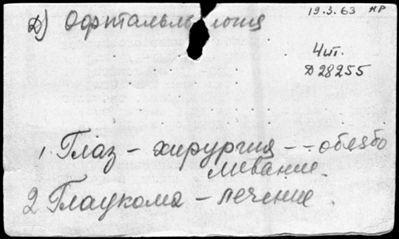 Д) Офтальмология
19.3.63 НР
Чит.
Д 28255
1. Глаз – хирургия – – обезбо
ливание.
2 Глаукома – лечение.